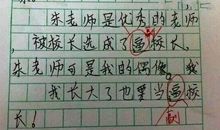 朱老师是优秀的老师
，被校长选成了校长，
朱老师可是我的偶像，我
我长大了也要当校
长！副